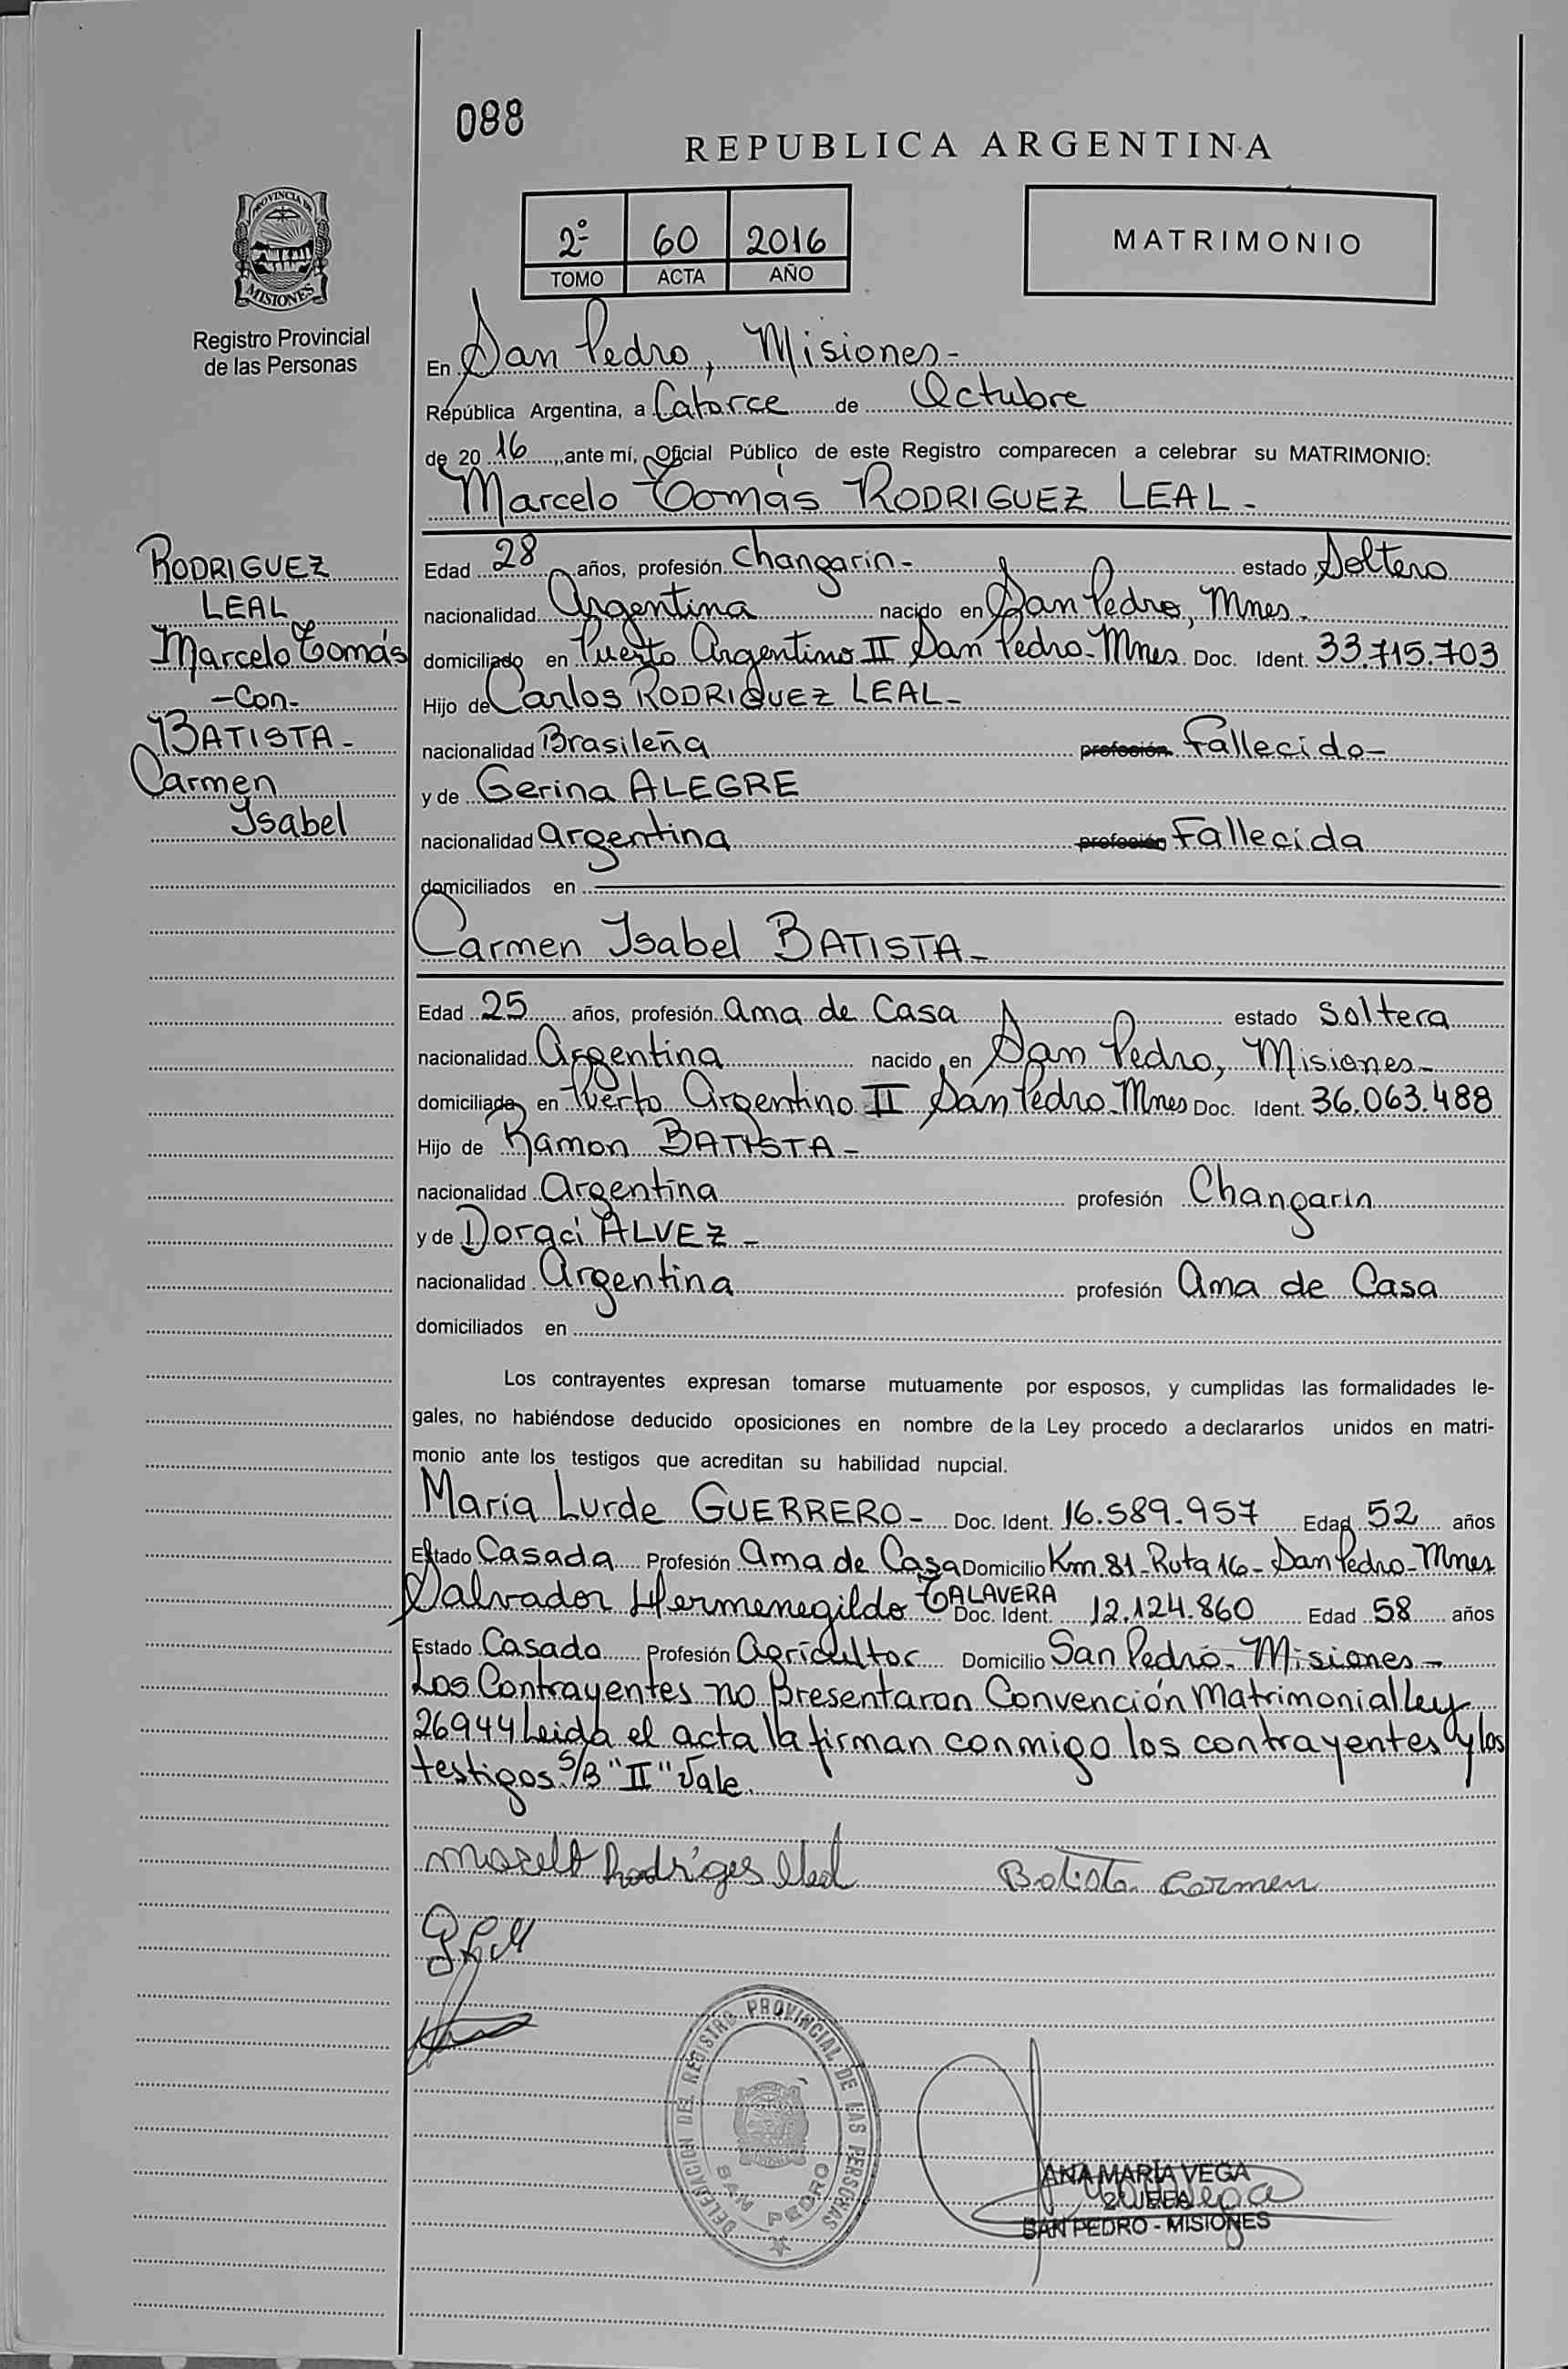 088
REPUBLICA ARGENTINA
2º 60 2016
TOMO ACTA AÑO
MATRIMONIO
PROVINCIA DE
MISIONES
Registro Provincial
de las Personas
En San Pedro, Misiones-
República Argentina, a Catorce de Octubre
de 20 16, ante mí, Oficial Público de este Registro comparecen a celebrar su MATRIMONIO:
Marcelo Tomás RODRIGUEZ LEAL-
RODRIGUEZ
LEAL
Marcelo Tomás
-Con-
BATISTA-
Carmen
Isabel
Edad 28 años, profesión Changarin- estado Soltero
nacionalidad Argentina nacido en San Pedro, Mnes-
domiciliado en Puerto Argentino II San Pedro-Mnes. Doc. Ident. 33.715.703
Hijo de Carlos RODRIGUEZ LEAL-
nacionalidad Brasileña profesión Fallecido-
y de Gerina ALEGRE
nacionalidad Argentina profesión Fallecida
domiciliados en
Carmen Isabel BATISTA-
Edad 25 años, profesión Ama de Casa estado Soltera
nacionalidad Argentina nacido en San Pedro, Misiones-
domiciliada en Puerto Argentino II San Pedro-Mnes Doc. Ident. 36.063.488
Hijo de Ramon BATISTA-
nacionalidad Argentina profesión Changarin
y de Doraci ALVEZ-
nacionalidad Argentina profesión Ama de Casa
domiciliados en
Los contrayentes expresan tomarse mutuamente por esposos, y cumplidas las formalidades le-
gales, no habiéndose deducido oposiciones en nombre de la Ley procedo a declararlos unidos en matri-
monio ante los testigos que acreditan su habilidad nupcial.
María Lurde GUERRERO- Doc. Ident. 16.589.957 Edad 52 años
Estado Casada Profesión Ama de Casa Domicilio Km.81-Ruta 16-San Pedro-Mnes
Salvador Hermenegildo TALAVERA Doc. Ident. 12.124.860 Edad 58 años
Estado Casado Profesión Agricultor Domicilio San Pedro-Misiones-
Los Contrayentes no Presentaron Convención Matrimonial Ley
26944 Leida el acta la firman conmigo los contrayentes y los
testigos S/B "II" Vale.
Batista Carmen
DELEGACION DEL REGISTRO PROVINCIAL DE LAS PERSONAS
SAN PEDRO
ANA MARÍA VEGA
SAN PEDRO - MISIONES